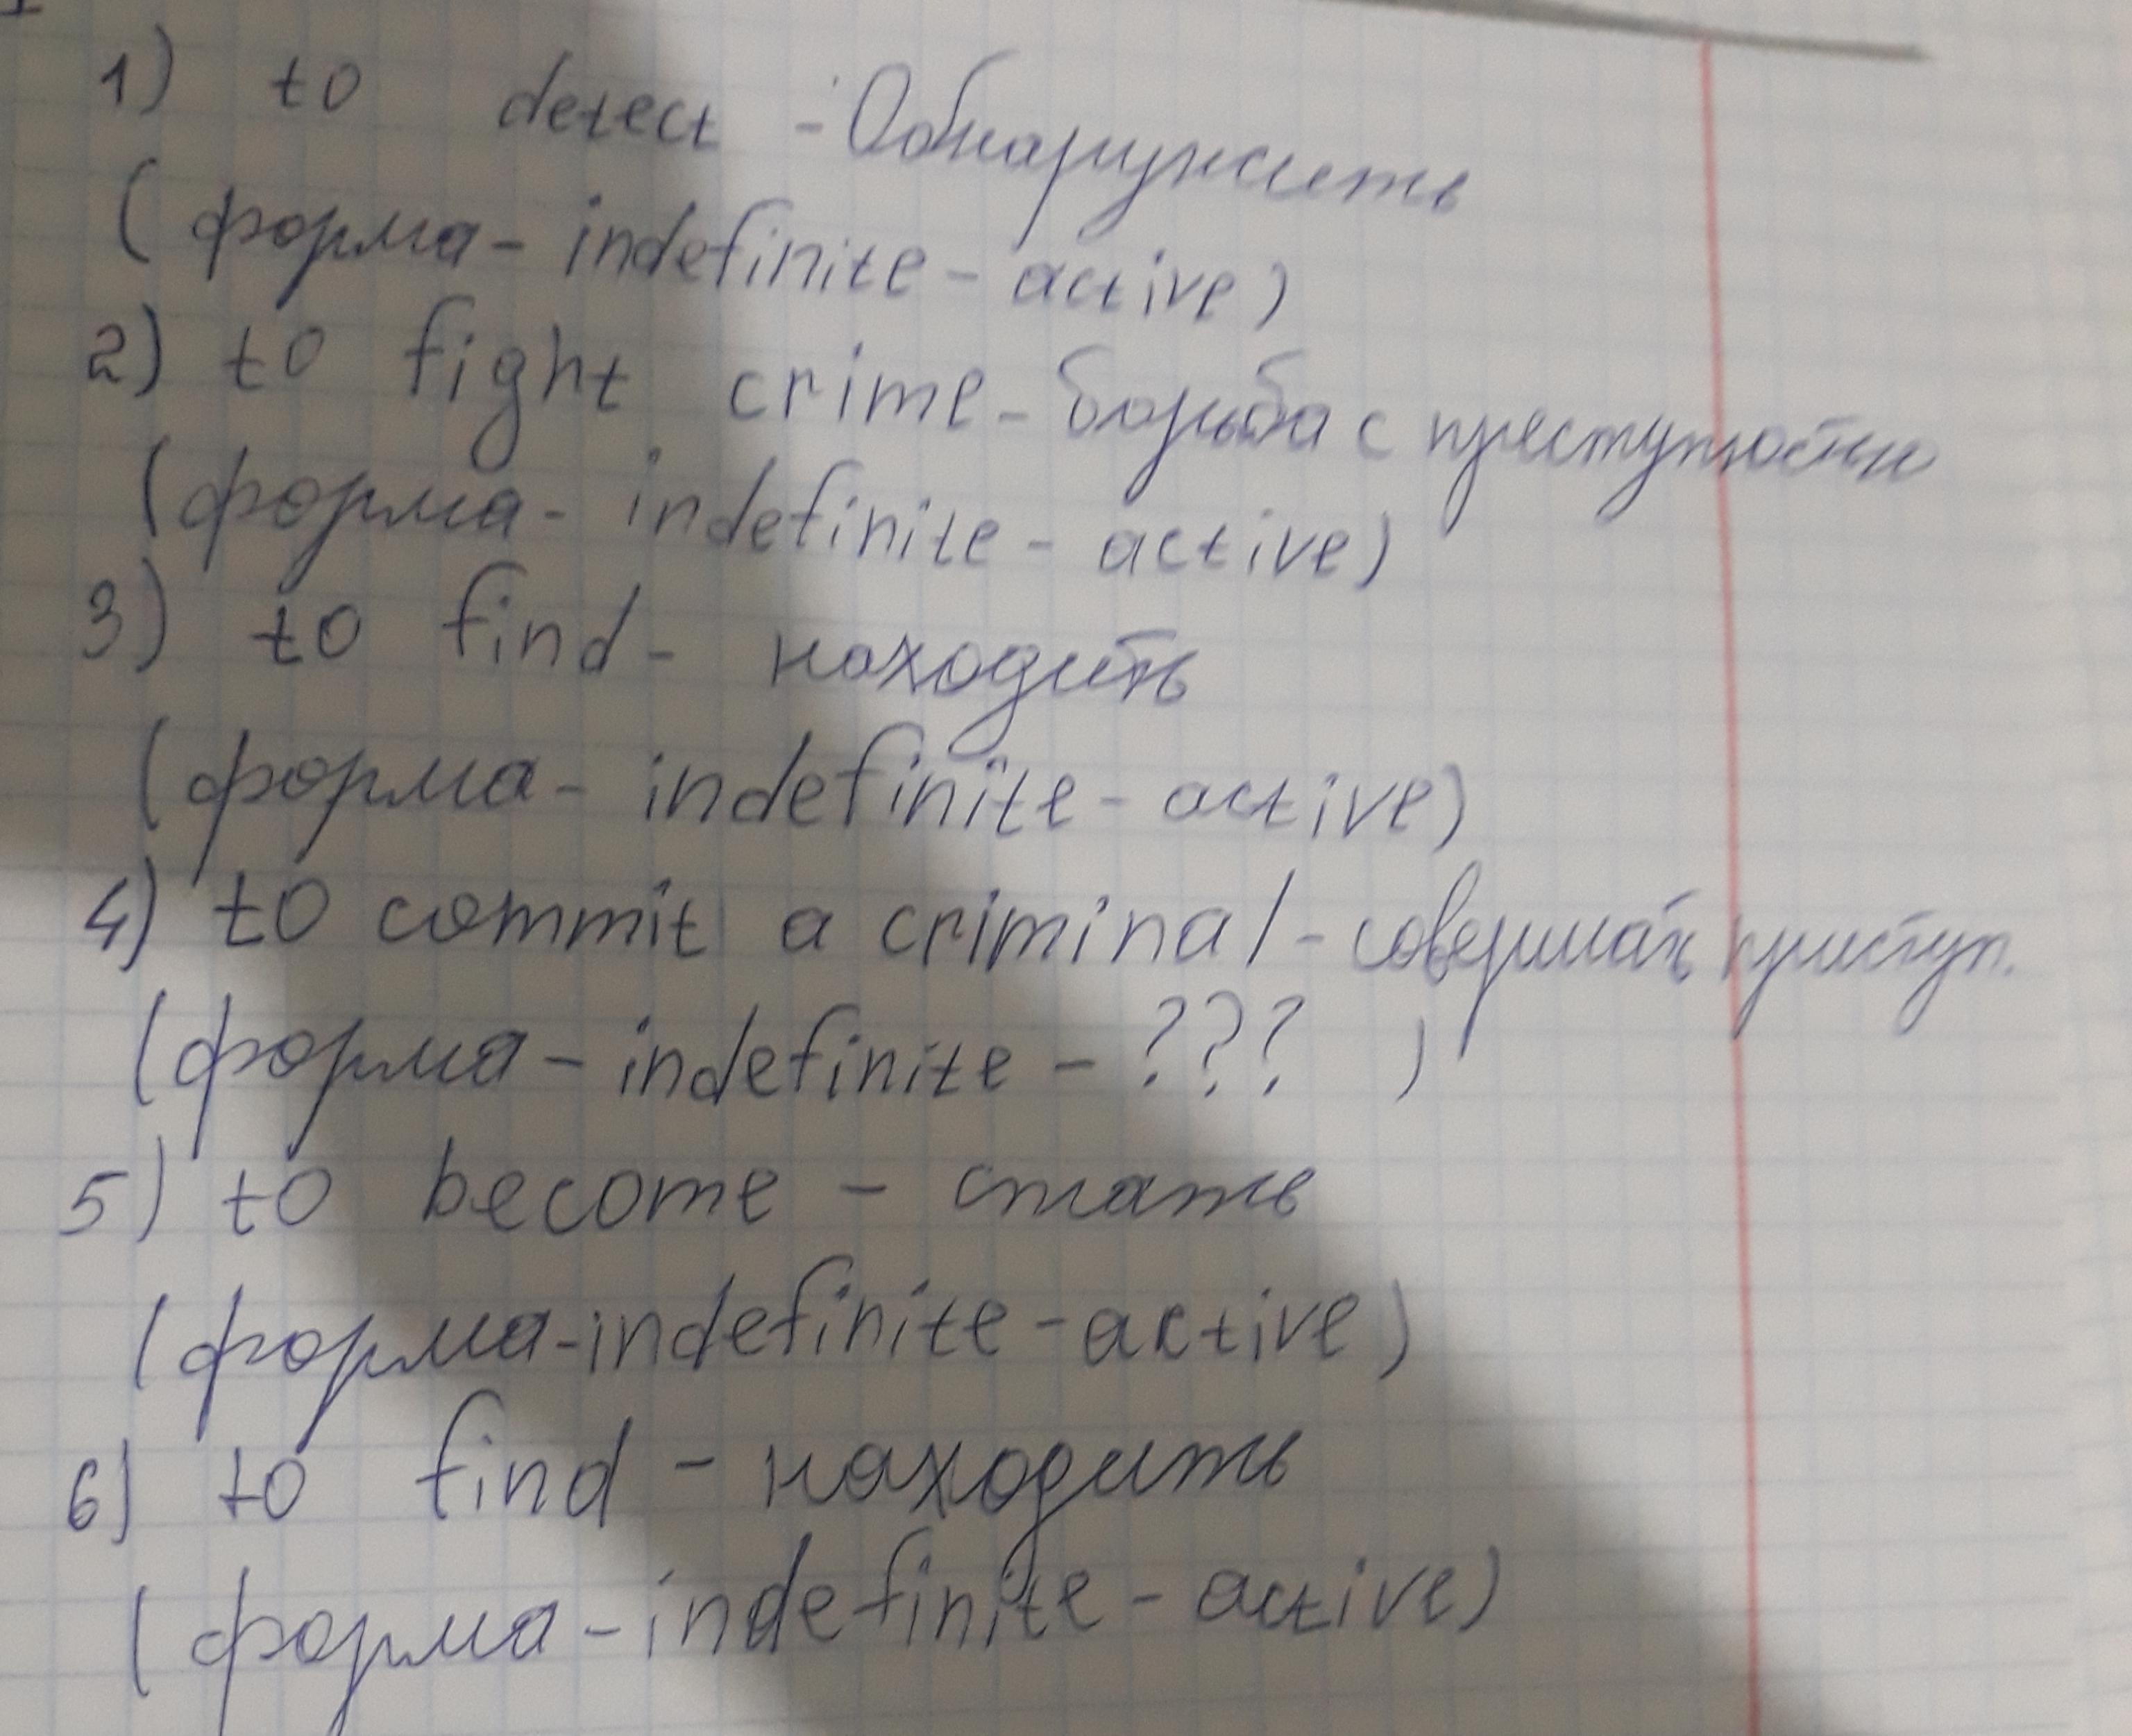 1) to detect - Обнаружить
(форма - indefinite - active)
2) to fight crime - борьба с преступностью
(форма - indefinite - active)
3) to find - находить
(форма - indefinite - active)
4) to commit a criminal - совершать приступ.
(форма - indefinite - ??? )
5) to become - стать
(форма - indefinite - active)
6) to find - находить
(форма - indefinite - active)